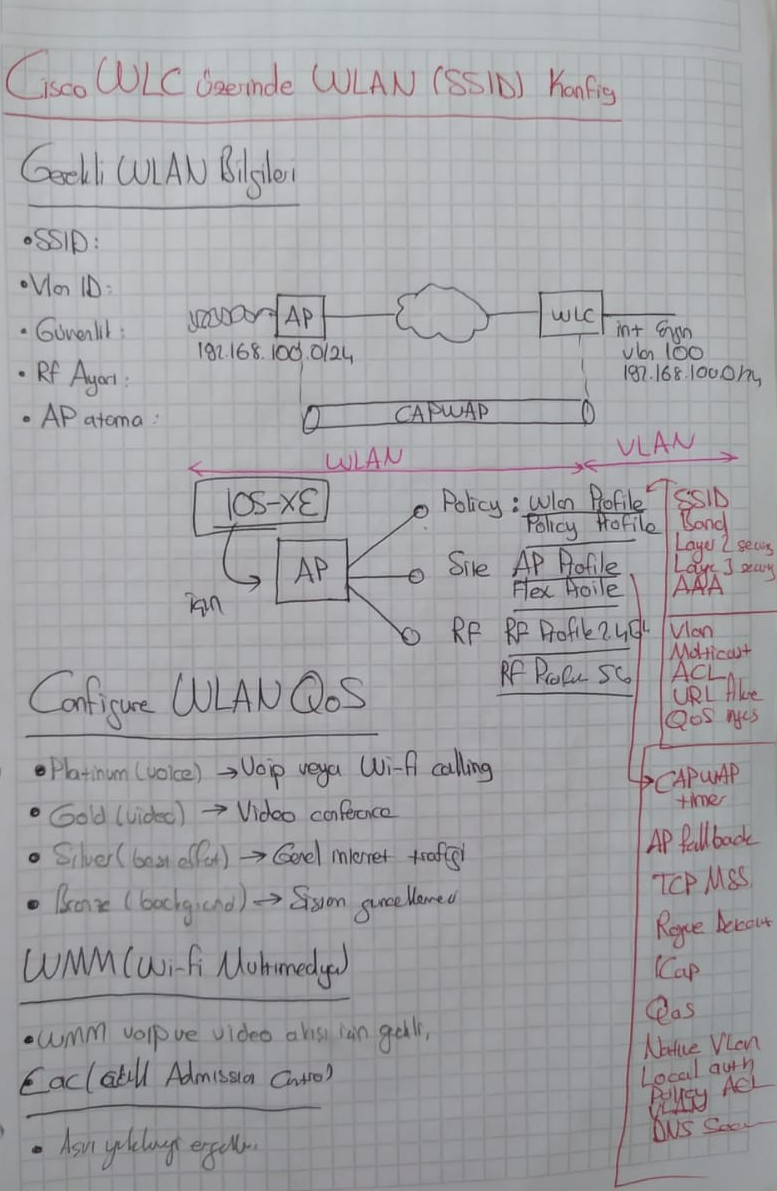 Cisco WLC üzerinde WLAN (SSID) Konfig
Gerekli WLAN Bilgileri
• SSID:
• Vlan ID:
• Güvenlik:
• Rf Ayarı:
• AP atama:
AP
192.168.100.0/24
WLC
int
vlan 100
192.168.100.0/24
CAPWAP
WLAN
VLAN
IOS-XE
için
AP
Policy: Wlan Profile
Policy Profile
Site AP Profile
Flex Profile
RF RF Profile 2.4G
RF Profile 5G
SSID
Band
Layer 2 secur
Layer 3 secur
AAA
Vlan
Multicast
ACL
URL
QoS
CAPWAP
timer
AP fallback
TCP MSS
Rogue Detect
ICap
QoS
Native Vlan
Local auth
Policy ACL
VLAN
DNS
Configure WLAN QoS
• Platinum (voice) → Voip veya Wi-fi calling
• Gold (video) → Video conference
• Silver (best effort) → Genel internet trafiği
• Bronze (background) → Sistem güncelleme
WMM (Wi-fi Multimedya)
• WMM voip ve video akışı için gerekli,
Cac (Call Admission Control)
• Aşırı yüklenmeyi engeller.